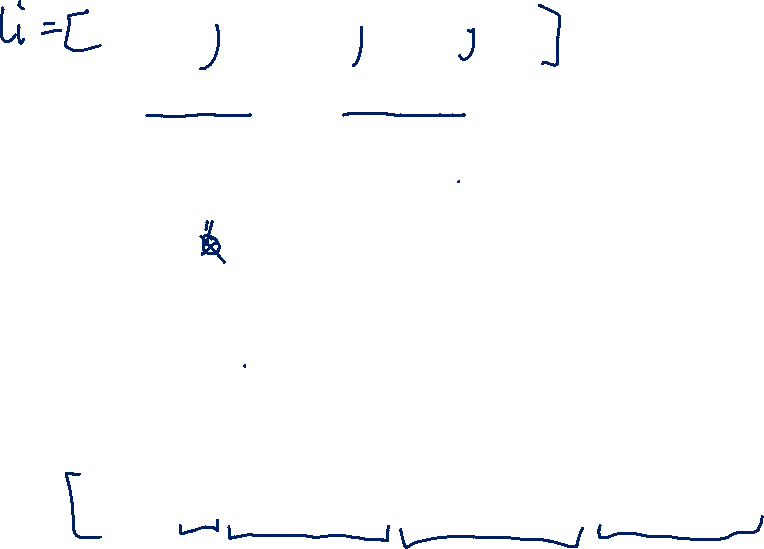 li = [ , , , ]
[